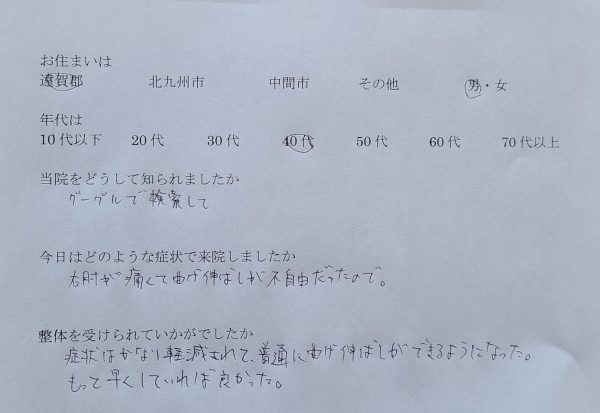 お住まいは
遠賀郡 北九州市 中間市 その他 男・女
年代は
10代以下 20代 30代 40代 50代 60代 70代以上
当院をどうして知られましたか
グーグルで検索して
今日はどのような症状で来院しましたか
右肘が痛くて曲げ伸ばしが不自由だったので。
整体を受けられていかがでしたか
症状はかなり軽減されて、普通に曲げ伸ばしができるようになった。
もっと早くしていれば良かった。